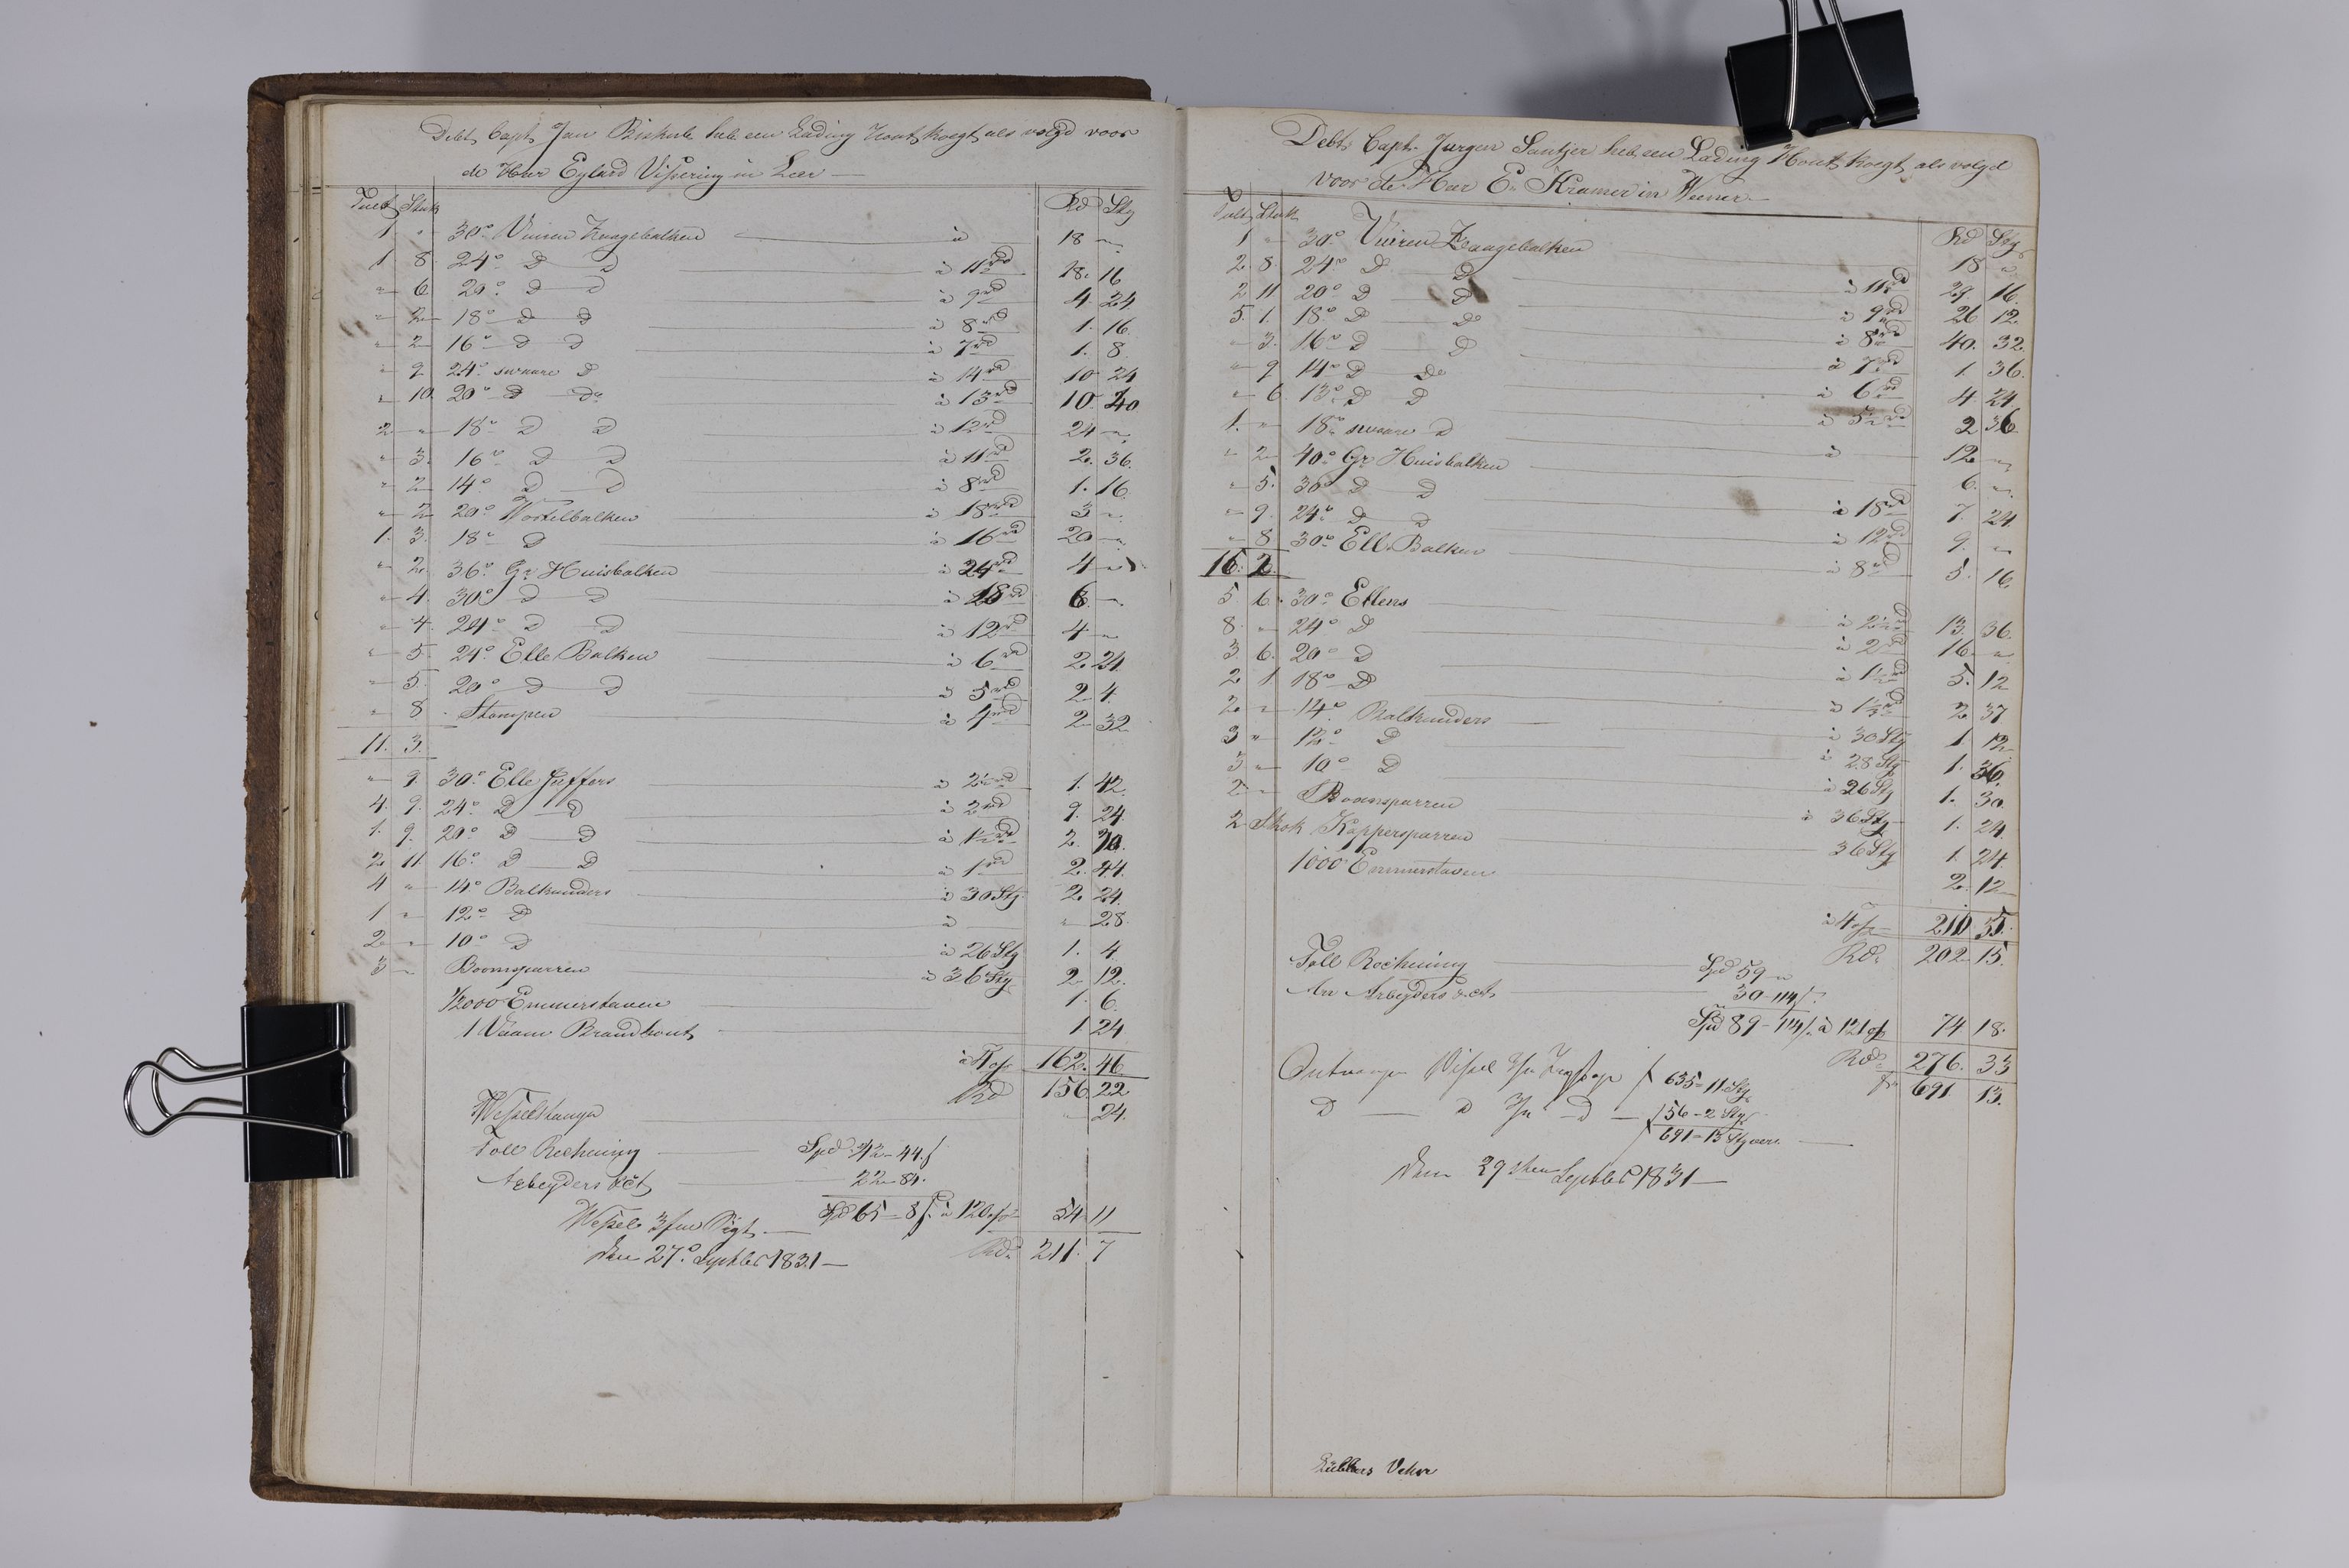 Debt Capt Jan heb een Lading Hout kogt als volgd voor
de Heer Eylard Vissering in Leer —
Tult Stuk Rd Stg
1 " 30° Vuiren Zaagebalken à 18 "
1 8 24° D D à 11 rd 18. 16
" 6 20° D D à 9 rd 4 24
" 2 18° D D à 8 rd 1. 16.
" 2 16° D D à 7 rd 1. 8
" 9 24° swaare D à 14 rd 10 24
" 10. 20° D Do à 13 rd 10 40
2 " 18° D D à 12 rd 24 "
" 3. 16° D D à 11 rd 2. 36.
" 2 14° D D à 8 rd 1. 16.
" 2 20° Wortelbalken à 18 rd 3 "
1. 3. 18° D à 16 rd 20 "
" 2. 36° Gr Huisbalken à 24 rd 4 "
" 4. 30° D D à 18 rd 6 "
" 4. 24° D D à 12 rd 4 "
" 5. 24° Elle Balken à 6 rd 2. 24.
" 5. 20° D D à 5 rd 2 4.
" 8 Stompen à 4 rd 2 32
11. 3.
" 9 30° Elle Juffers à 2½ rd 1. 42.
4. 9. 24° D D à 2 rd 9. 24
1. 9. 20° D D à 1½ rd 2.
2. 11. 16° D D à 1 rd 2. 44.
4 " 14° Balkunders à 30 Stg 2. 24.
1 " 12° D à " 28.
2 " 10° D à 26 Stg 1. 4.
3 " Boomsparren à 36 Stg 2 12.
1/2000 Emmerstaven 1. 6.
1 Vaam Brandhout 1 24
à 4 op 162. 46.
Rd 156. 22
" 24.
Toll Rechning Spd 42 - 44 f
Arbeyders &ct 22 - 84.
Spd 65 - 8 f. à 120 op 54 11
Wessels 3/m Sigt
Den 27° Septbe 1831 — Rd. 211. 7
Debt Capt. Jurgen Santjer heb een Lading Hout kogt als volgd
voor de Heer E. Kramer in Weener —
Tult Stuk Rd Stg
1 " 30° Vuiren Zaagebalken 18 "
2. 8. 24° D D à 11 rd 29. 16.
2 11 20° D D à 9 rd 26 12.
5. 1. 18° D D à 8 rd 40. 32.
" 3. 16° D D à 7 rd 1. 36.
" 9 14° D Do à 6 rd 4. 24
" 6 13° D D à 5½ rd 2 36
1. " 18° swaare D à 12 "
" 2 40° Gr Huisbalken 6. "
" 5. 30° D D à 18 rd 7. 24.
" 9. 24° D D à 12 rd 9. "
" 8 30° Elle Balken à 8 rd 5. 16.
16. 2.
5 6. 30° Ellens à 2½ rd 13. 36.
8. " 24° D à 2 rd 16. "
3 6. 20° D à 1½ rd 5. 12
2 1 18° D à 1⅓ rd 2. 37
2. " 14° Balkunders à 30 Stg 1. 12.
3 " 12° D à 28 Stg 1. 36.
3 " 10° D à 26 Stg 1. 30.
2 " Boomsparren à 36 Stg 1. 24.
2 Skok Kappersparren 36 Stg 1 24.
1000 Emmerstaven 2. 12
à 4 op 210. 35.
Rd. 202. 15.
Toll Rechning Spd 59 "
An Arbeyders &ct 30 - 114 f.
Spd 89 - 114 f. à 121 op 74 18.
Rd. 276. 33
f 691 13.
f 635 - 11 Stg.
D D 3/m D f 56 - 2 Stg.
f 691 - 13 Styvers. —
Den 29 sten Septbe 1831 —